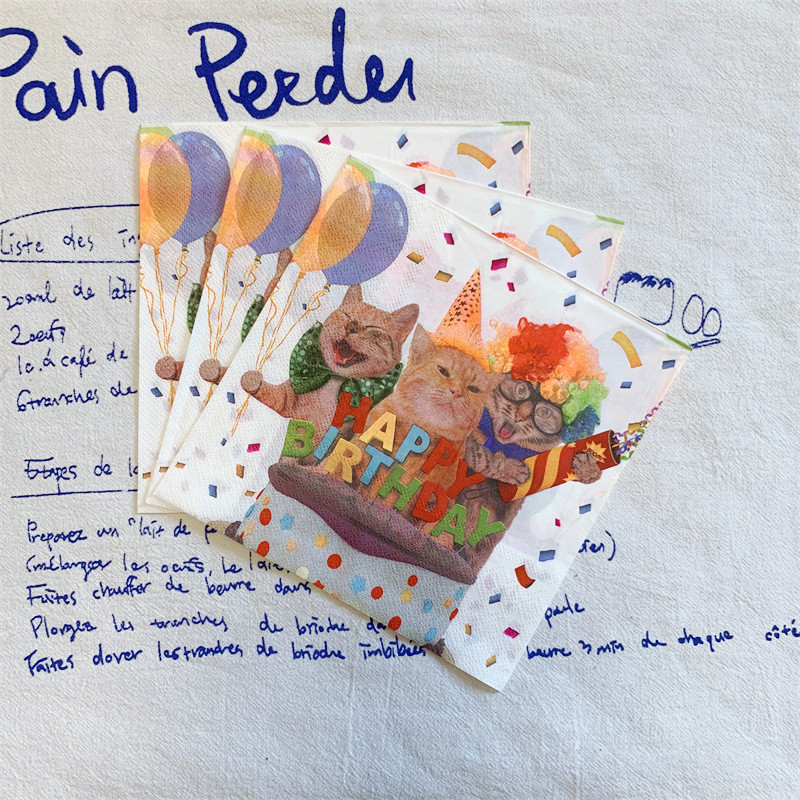 Pain Perdu
Liste des
200ml de lait
2 oeufs
1c. à café de
6 tranches de
HAPPY
BIRTHDAY
Etapes de
Préparez un "lait de
(mélangez les oeufs, le
Faites chauffer de beurre dans
poele
Plongez les tranches de brioche
Faites dorer les tranches de brioche imbibées beurre 3 min de chaque côté